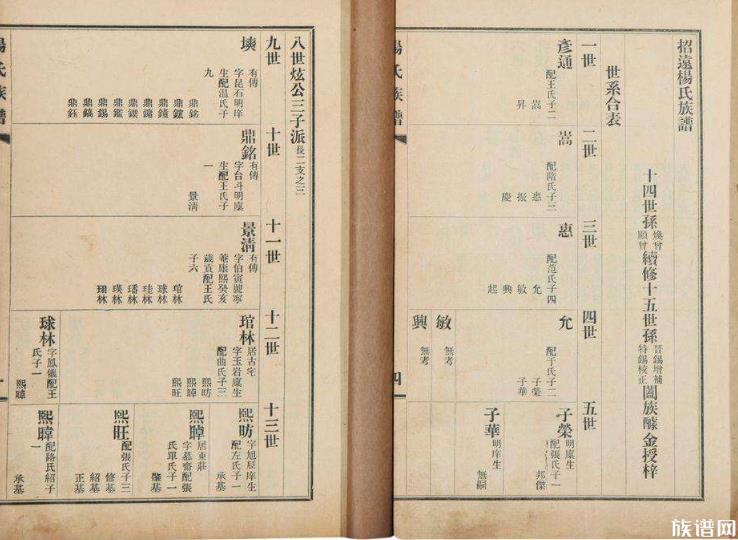 招遠楊氏族譜
十四世孫煥曾顯曾續修十五世孫晉錫增補特錫校正闔族醵金授梓
世系合表
一世
彥通
配王氏子二
嵩
昇
二世
嵩
配隋氏子三
惠
振
慶
三世
惠
配范氏子四
允
敏
興
起
四世
允
配于氏子二
子榮
子華
敏
無考
興
無考
五世
子榮
明廩生
配張氏子一
邦傑
子華
明庠生
無嗣
楊氏族譜
四
八世炫公三子派長二支之三
九世
㙇
有傳
字昆石明庠
生配溫氏子
九
鼎銘
鼎鑨
鼎鏞
鼎鑑
鼎錫
鼎鎬
鼎鈺
十世
鼎銘
有傳
字台斗明廩
生配王氏子
一
景清
十一世
景清
有傳
字伯寅號寧
菴康熙癸亥
歲貢配王氏
子六
琯林
球林
珪林
璠林
瑛林
珝林
十二世
琯林
居古宅
字玉岩廩生
配曲氏子三
熙昉
熙暐
熙旺
球林
字鳳儀配王
氏子一
熙暲
十三世
熙昉
字旭辰庠生
配左氏子一
承基
熙暐
居東莊
字慕齋配張
氏單氏子一
肇基
熙旺
配張氏子三
修基
紹基
正基
熙暲
配路氏紹子
一
承基
楊氏族譜
族谱网